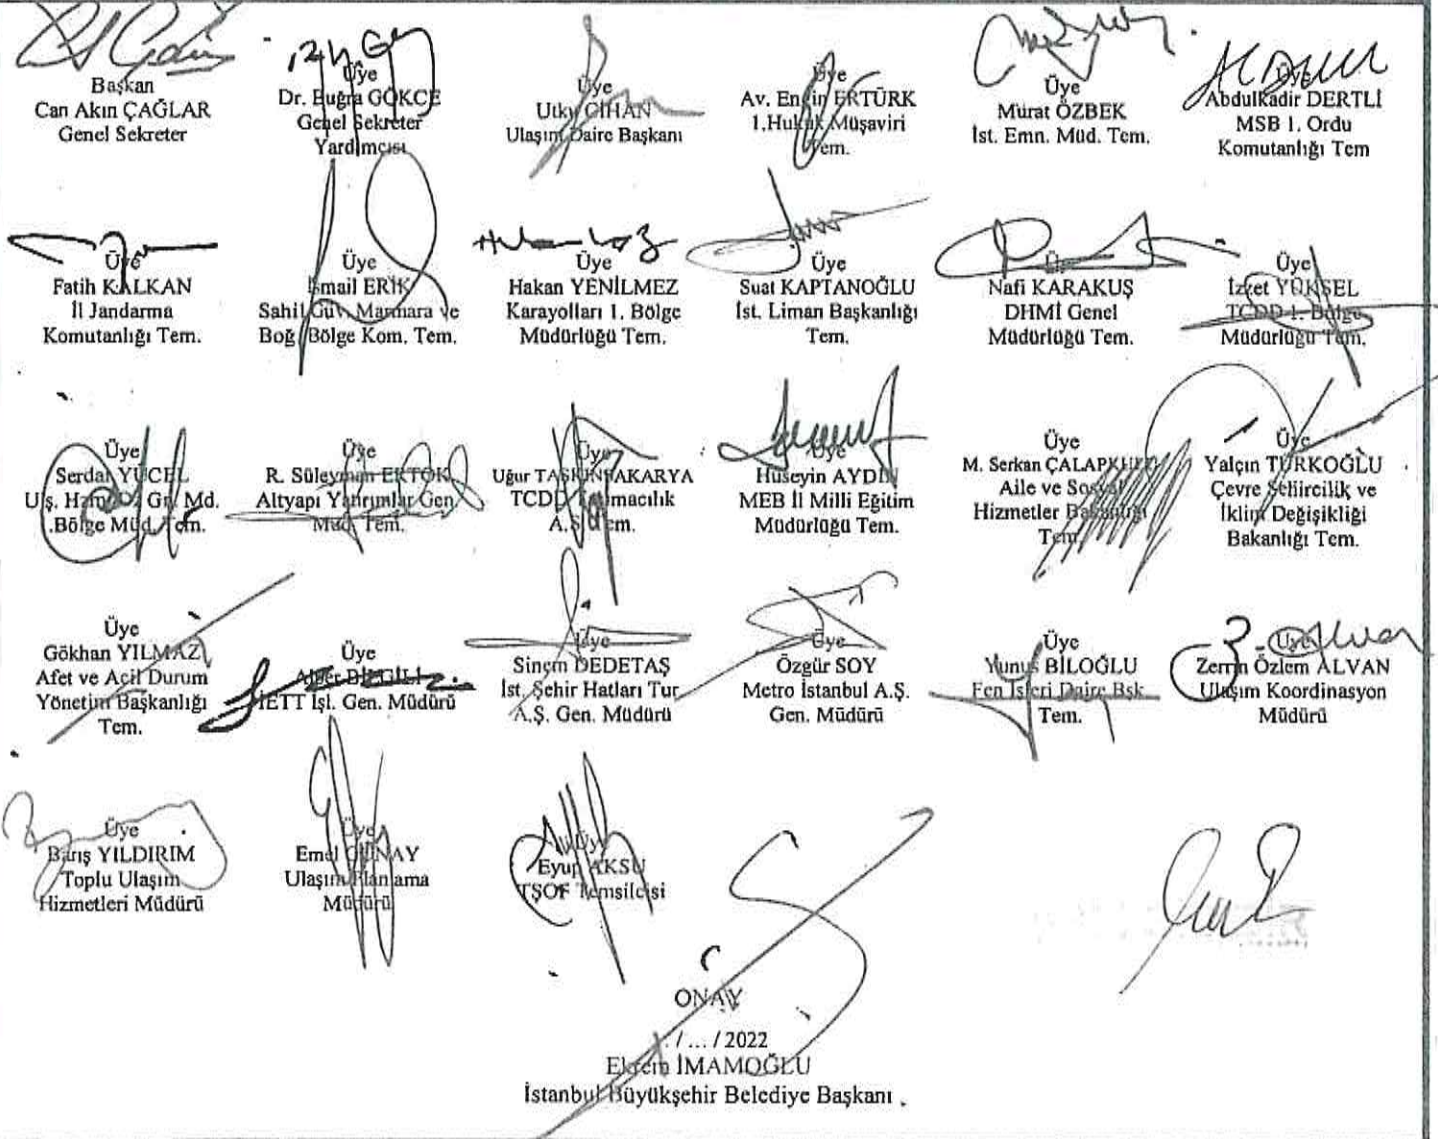 Başkan
Can Akın ÇAĞLAR
Genel Sekreter
Üye
Dr. Buğra GÖKCE
Genel Sekreter
Yardımcısı
Üye
Utku CİHAN
Ulaşım Daire Başkanı
Üye
Av. Engin ERTÜRK
1.Hukuk Müşaviri
Tem.
Üye
Murat ÖZBEK
İst. Emn. Müd. Tem.
Üye
Abdulkadir DERTLİ
MSB 1. Ordu
Komutanlığı Tem
Üye
Fatih KALKAN
İl Jandarma
Komutanlığı Tem.
Üye
İsmail ERİK
Sahil Güv. Marmara ve
Boğ. Bölge Kom. Tem.
Üye
Hakan YENİLMEZ
Karayolları 1. Bölge
Müdürlüğü Tem.
Üye
Suat KAPTANOĞLU
İst. Liman Başkanlığı
Tem.
Üye
Nafi KARAKUŞ
DHMİ Genel
Müdürlüğü Tem.
Üye
İzzet YÜKSEL
TCDD 1. Bölge
Müdürlüğü Tem.
Üye
Serdar YÜCEL
Ulş. Hizm. Gn. Md.
Bölge Müd. Tem.
Üye
R. Süleyman ERTOK
Altyapı Yatırımlar Gen.
Müd. Tem.
Üye
Uğur TAŞKINSAKARYA
TCDD Taşımacılık
A.Ş. Tem.
Üye
Hüseyin AYDIN
MEB İl Milli Eğitim
Müdürlüğü Tem.
Üye
M. Serkan
Aile ve Sosyal
Hizmetler Bakanlığı
Tem.
Üye
Yalçın TÜRKOĞLU
Çevre Şehircilik ve
İklim Değişikliği
Bakanlığı Tem.
Üye
Gökhan YILMAZ
Afet ve Acil Durum
Yönetim Başkanlığı
Tem.
Üye
İETT İşl. Gen. Müdürü
Üye
Sinem DEDETAŞ
İst. Şehir Hatları Tur.
A.Ş. Gen. Müdürü
Üye
Özgür SOY
Metro İstanbul A.Ş.
Gen. Müdürü
Üye
Yunus BİLOĞLU
Fen İşleri Daire Bşk.
Tem.
Üye
Zerrin Özlem ALVAN
Ulaşım Koordinasyon
Müdürü
Üye
Barış YILDIRIM
Toplu Ulaşım
Hizmetleri Müdürü
Üye
Emel GÜNAY
Ulaşım Planlama
Müdürü
Üye
Eyup AKSU
TŞOF Temsilcisi
ONAY
/ ... / 2022
Ekrem İMAMOĞLU
İstanbul Büyükşehir Belediye Başkanı